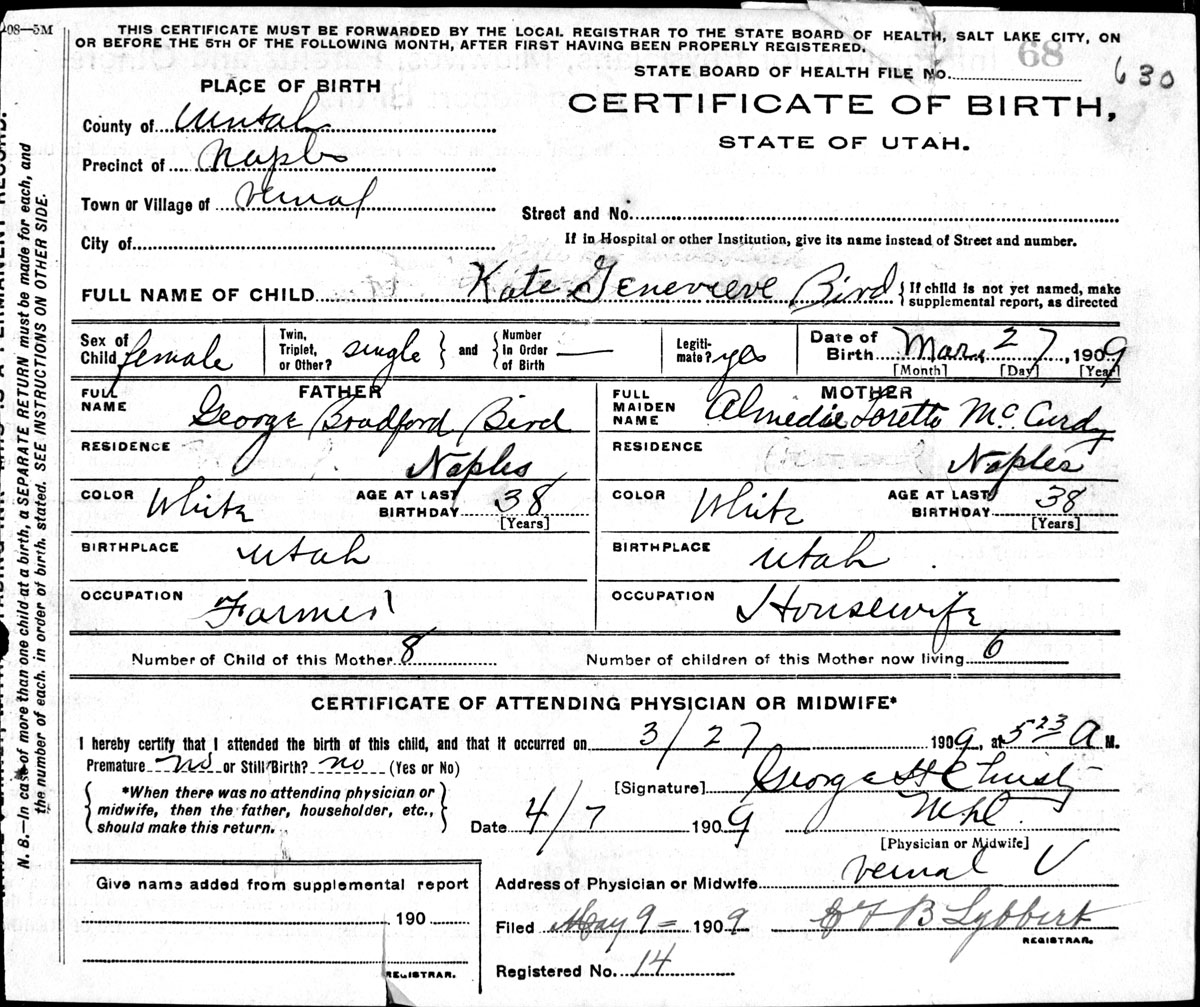 08—5M
THIS CERTIFICATE MUST BE FORWARDED BY THE LOCAL REGISTRAR TO THE STATE BOARD OF HEALTH, SALT LAKE CITY, ON
OR BEFORE THE 5TH OF THE FOLLOWING MONTH, AFTER FIRST HAVING BEEN PROPERLY REGISTERED.
STATE BOARD OF HEALTH FILE No. 68 630
PLACE OF BIRTH
CERTIFICATE OF BIRTH,
STATE OF UTAH.
County of Uintah
Precinct of Naples
Town or Village of Vernal
Street and No.
City of
If in Hospital or other Institution, give its name instead of Street and number.
FULL NAME OF CHILD Kate Genevieve Bird { If child is not yet named, make
supplemental report, as directed
Sex of Child female Twin, Triplet, or Other? single } and { Number In Order of Birth — Legiti- mate? yes Date of Birth Mar. 27, 1909
[Month] [Day] [Year]
FATHER MOTHER
FULL NAME George Bradford Bird FULL MAIDEN NAME Almedie Loretto McCurdy
RESIDENCE Naples RESIDENCE Naples
COLOR White AGE AT LAST BIRTHDAY 38 [Years] COLOR White AGE AT LAST BIRTHDAY 38 [Years]
BIRTHPLACE Utah BIRTHPLACE Utah
OCCUPATION Farmer OCCUPATION Housewife
Number of Child of this Mother 8 Number of children of this Mother now living 6
CERTIFICATE OF ATTENDING PHYSICIAN OR MIDWIFE*
I hereby certify that I attended the birth of this child, and that it occurred on 3/27 1909, at 5 23 A M.
Premature no or Still Birth? no (Yes or No)
[Signature] George H Christy
M.D.
*When there was no attending physician or
midwife, then the father, householder, etc.,
should make this return.
Date 4/7 1909
[Physician or Midwife]
Address of Physician or Midwife Vernal U
Give name added from supplemental report
190
REGISTRAR.
Filed May 9 = 1909 B Lybbert
REGISTRAR.
Registered No. 14
N. B.—In case of more than one child at a birth, a SEPARATE RETURN must be made for each, and
the number of each, in order of birth, stated. SEE INSTRUCTIONS ON OTHER SIDE.